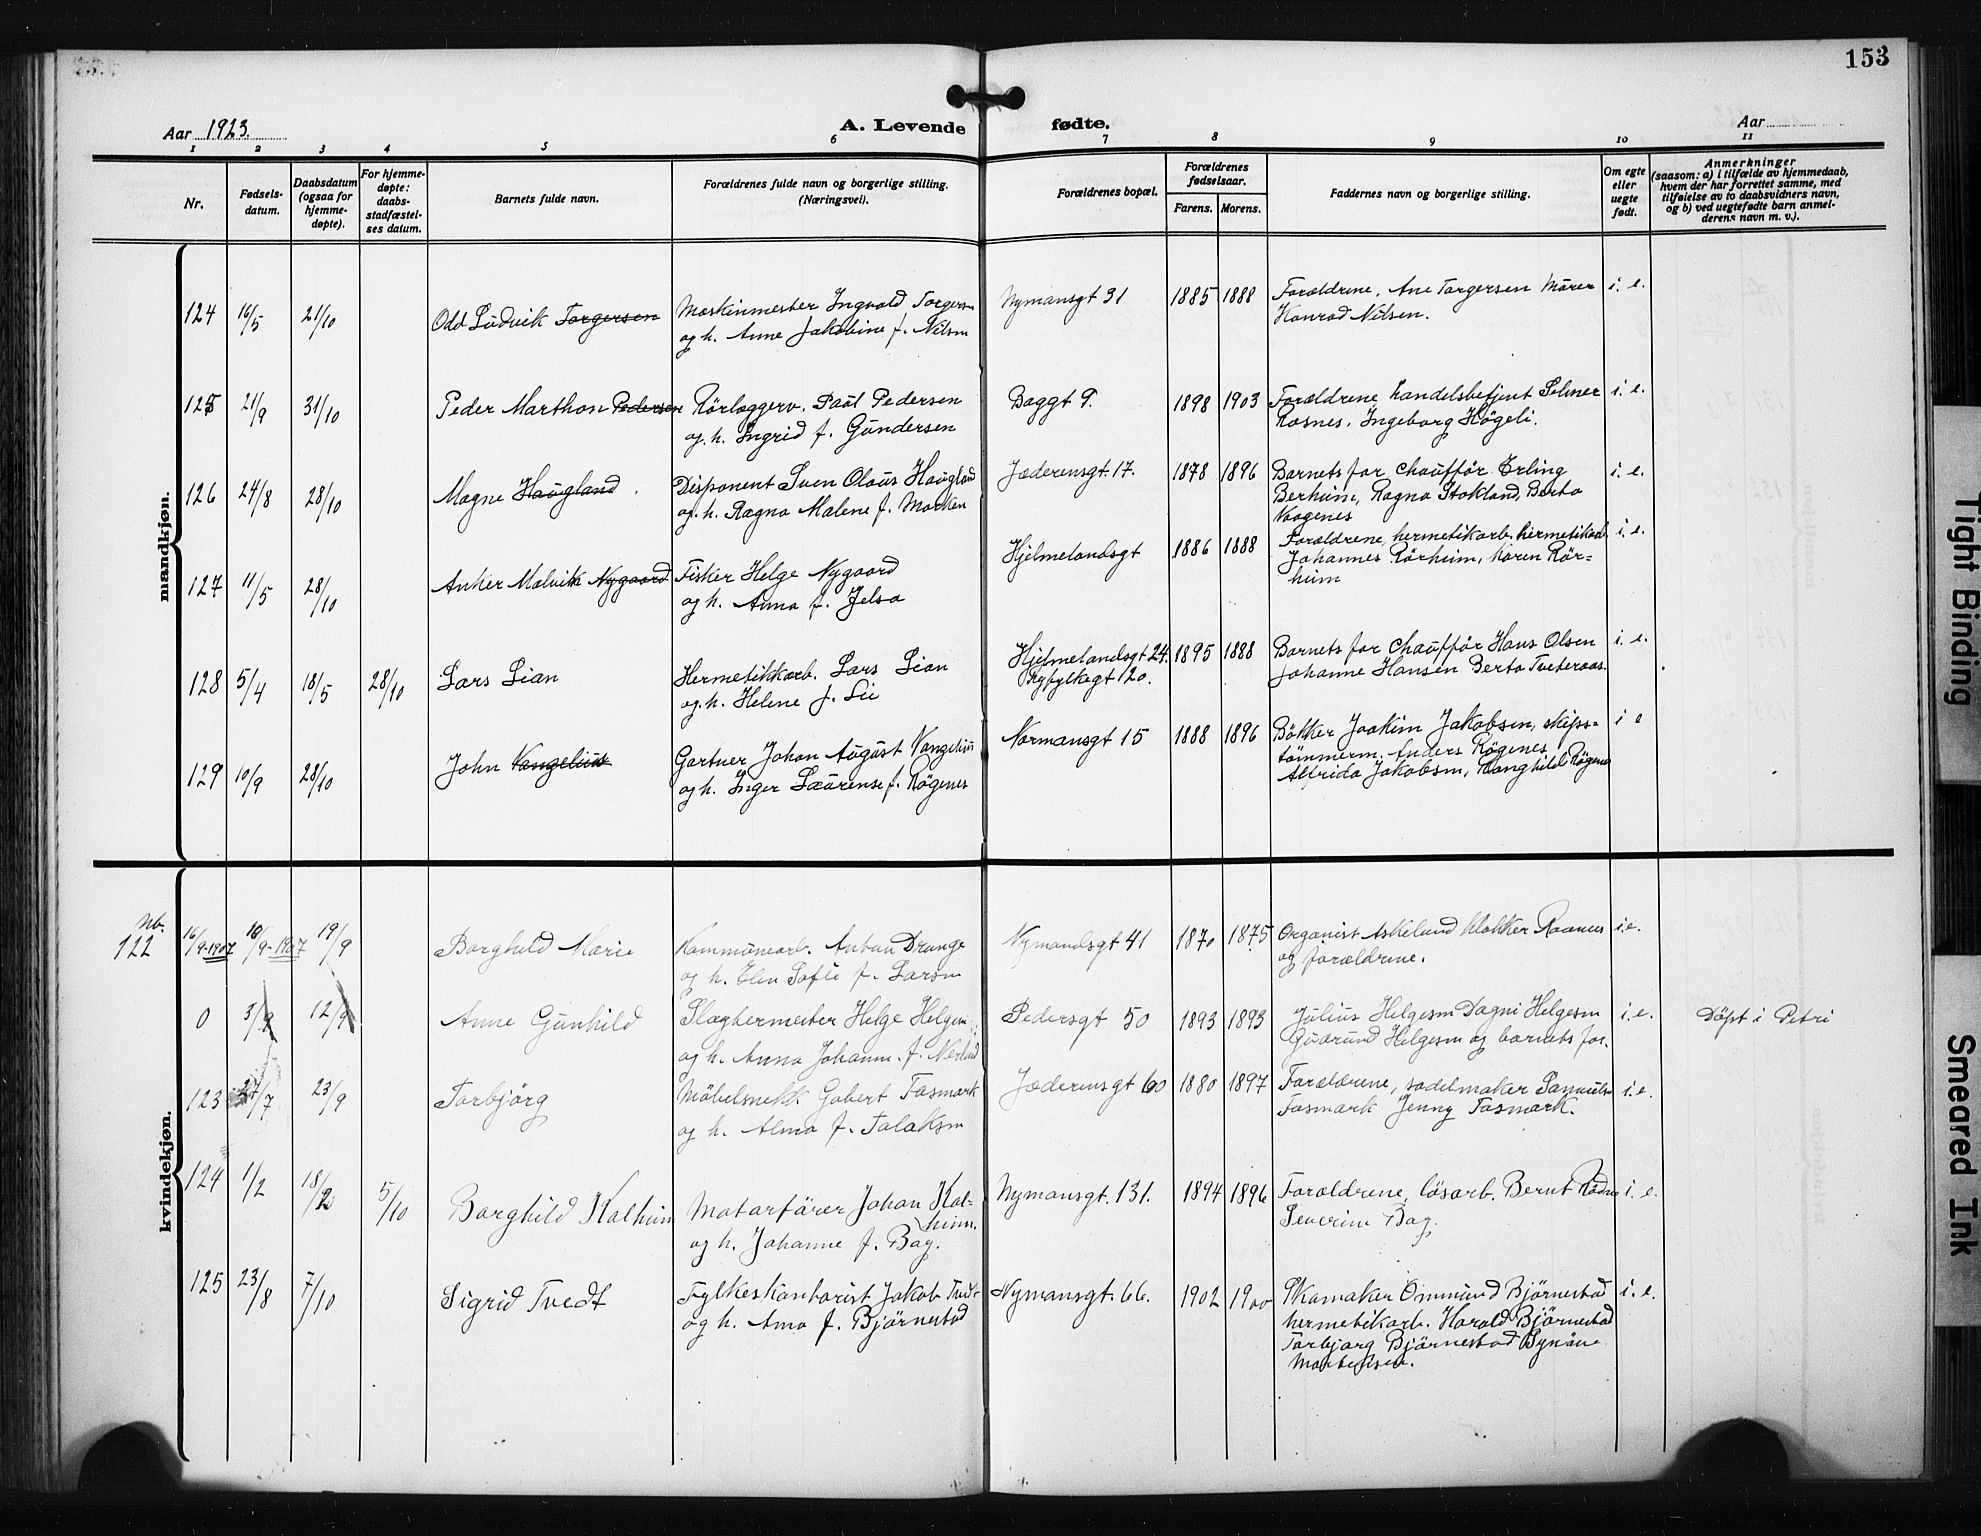 153
Aar 1923.
A. Levende fødte.
Aar
1 2 3 4 5 6 7 8 9 10 11
Nr.
Fødsels-
datum.
Daabsdatum
(ogsaa for
hjemme-
døpte).
For hjemme-
døpte:
daabs-
stadfæstel-
ses datum.
Barnets fulde navn.
Forældrenes fulde navn og borgerlige stilling.
(Næringsvei).
Forældrenes bopæl.
Forældrenes
fødselsaar.
Farens. Morens.
Faddernes navn og borgerlige stilling.
Om egte
eller
uegte
født.
Anmerkninger
(saasom: a) i tilfælde av hjemmedaab,
hvem der har forrettet samme, med
tilføielse av to daabsvidners navn,
og b) ved uegtefødte barn anmel-
derens navn m. v.).
mandkjøn.
124 16/5 21/10 Odd Ludvik Torgersen
Maskinmester Ingvald Torgersen
og h. Anne Jakobine f. Nilsen
Nymansgt 31 1885 1888
Forældrene, Ane Torgersen Mårer
Konrad Nilsen.
i. e.
125 21/9 31/10 Peder Marthon Pedersen
Rörlæggerv. Paul Pedersen
og. h. Ingrid f. Gundersen
Baggt 9. 1898 1903
Forældrene, handelsbetjent Selmer
Rosnes, Ingeborg Högeli.
i. e.
126 24/8 28/10 Magne Haugland
Disponent Sven Olaus Haugland
og. h. Ragna Malene f. Morken
Jæderensgt. 17. 1878 1896
Barnets far chaufför Erling
Berheim, Ragna Stokland, Berta
Vaagenes
i. e.
127 11/5 28/10 Anker Malvik Nygaard
Fisker Helge Nygaard
og h. Anna f. Jelsa
Hjelmelandsgt 1886 1888
Forældrene, hermetikarb. hermetikarb.
Johannes Rörheim, Karen Rör-
heim
i. e.
128 5/4 18/5 28/10 Lars Lian
Hermetikkarb. Lars Lian
og. h. Helene f. Lie
Hjelmelandsgt 24.
Ryfylkegt 20.
1895 1888
Barnets far chaufför Hans Olsen
Johanne Hansen Berta Tveteraas
i. e.
129 10/9 28/10 John Vangelius
Gartner Johan August Vangelius
og h. Inger Laurense f. Rögenes
Normansgt 15 1888 1896
Bökker Joakim Jakobsen, skips-
tömmerm. Anders Rögenes
Alfrida Jakobsen, Ranghild Rögenes
i e
kvindekjøn.
Nb.
122 16/9-1907 18/9-1907 19/9 Borghild Marie
Kommunearb. Anton Drange
og h. Elen Sofie f. Larsen
Nymandsgt 41 1870 1875
Organist Askelund klokker Raanes
og forældrene.
i. e.
0 3/9 12/9 Anne Gunhild
Slagtermester Helge Helgesen
og h. Anna Johanne f. Nærland
Pedersgt 50 1893 1893
Julius Helgesen Dagni Helgesen
Gudrund Helgesen og barnets far.
i. e.
Döpt i Petri
123 27/7 23/9 Torbjörg
Möbelsnekk. Gabert Fasmark
og h. Alma f. Talaksen
Jæderensgt 60 1880 1897
Forældrene, sadelmaker Samuelsen
Fasmark Jenny Fasmark.
i. e.
124 1/2 18/2 5/10 Borghild Kalheim
Motorförer Johan Kal-
heim.
og h. Johanne f. Bag.
Nymansgt. 131. 1894 1896
Forældrene, lösarb. Bernt Rodne
Severine Bag.
i. e.
125 23/8 7/10 Sigrid Tvedt
Fylkeskontorist Jakob Tvedt
og h. Ama f. Björnestad
Nymansgt. 66. 1902 1900
Skomaker Ommund Björnestad
hermetikarb. Harald Björnestad
Torbjorg Björnestad Synöve
Mortensen.
i. e.
Tight Binding
Smeared Ink